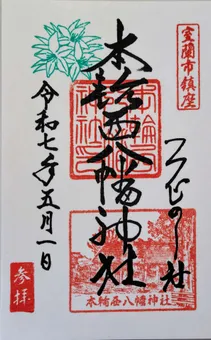 室蘭市鎮座
本輪西八幡神社
令和七年五月一日
参拝
本輪西八幡神社